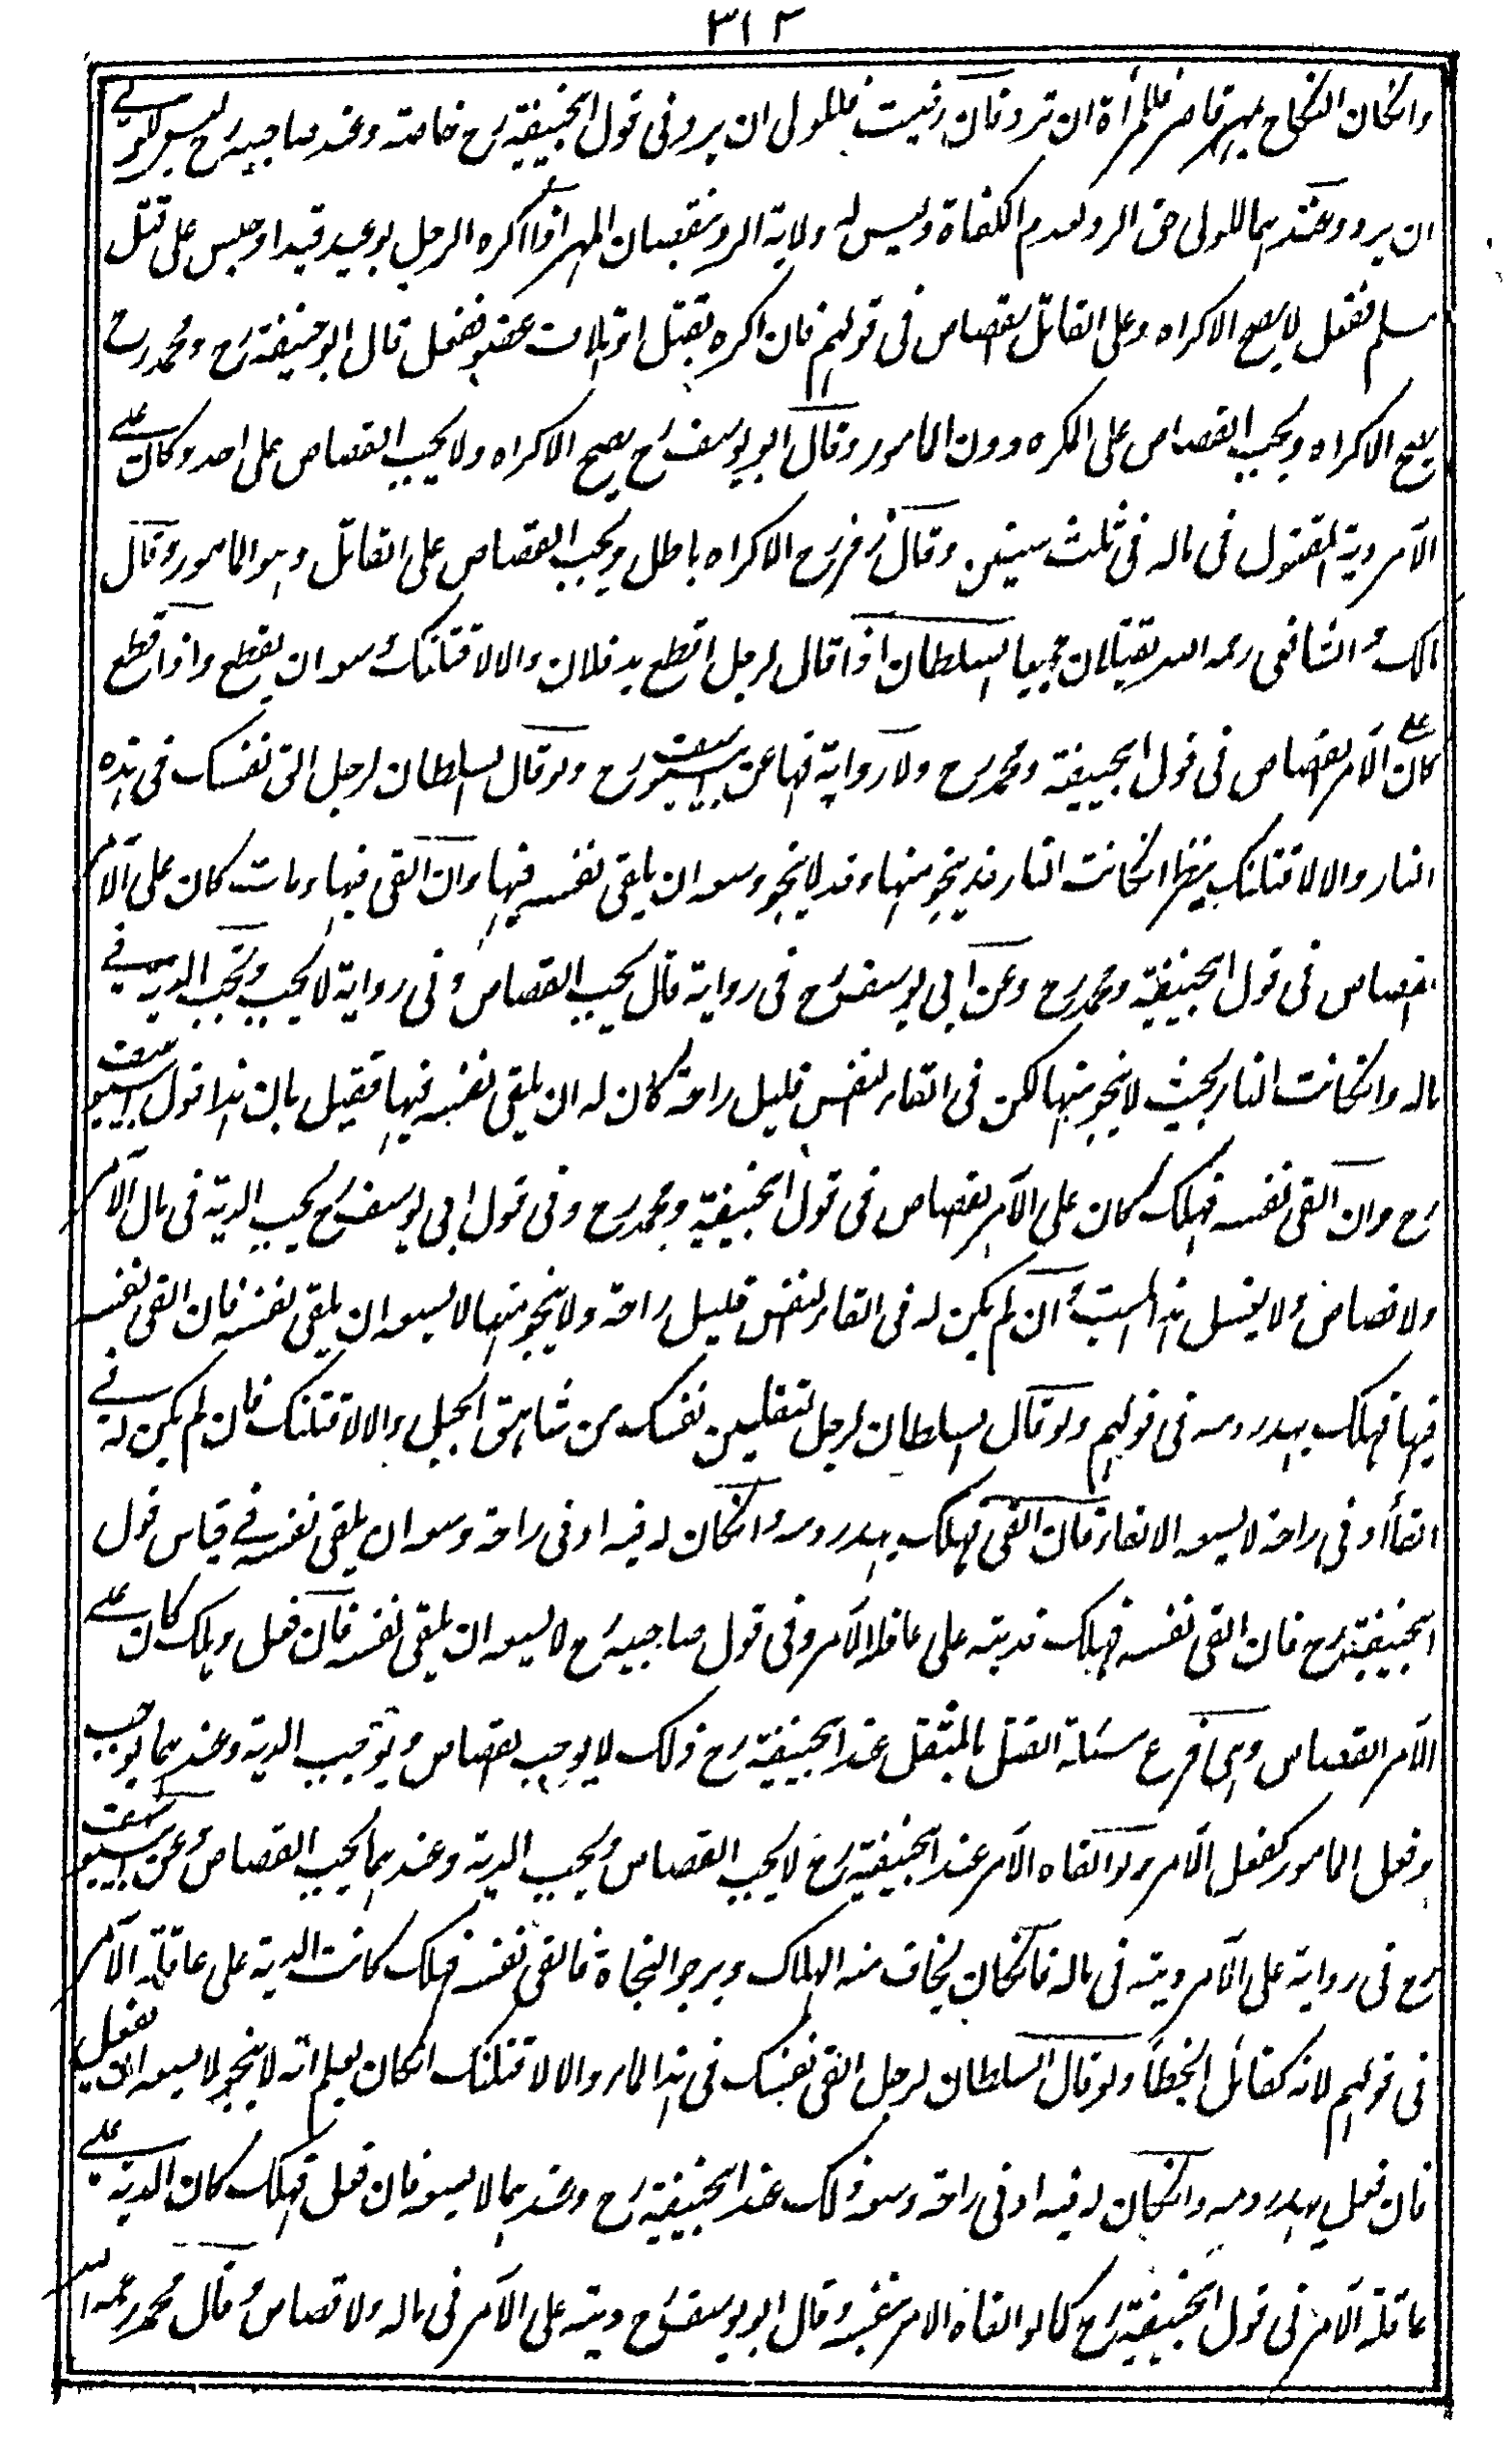 ٣١٢
وانكان النكاح بمهر قاصر فللمرأة ان ترد فان رضيت فللولى ان يرد فى قول ابيحنيفة رح خاصة وعند صاحبيه رح ليس للولى
ان يرد وعندهما للولى حق الرد لعدم الكفاة وليس له ولاية الرد بنقصان المهر اذا اكره الرجل بوعيد قيد او حبس على قتل
مسلم ففعل لا يصح الاكراه وعلى القاتل القصاص فى قولهم فان اكره بقتل او تلاف عضو ففعل قال ابو حنيفة رح ومحمد رح
يصح الاكراه ويجب القصاص على المكره دون المامور وقال ابو يوسف رح يصح الاكراه ولا يجب القصاص على احد وكان على
الآمر دية المقتول فى ماله فى ثلث سنين وقال زفر رح الاكراه باطل ويجب القصاص على القاتل وهو المامور وقال
مالك والشافعى رحمه الله يقتلان جميعا السلطان اذا قال لرجل اقطع يد فلان والا لاقتلنك وسعه ان يقطع واذا قطع
كان على الآمر القصاص فى قول ابيحنيفة ومحمد رح ولا رواية فيها عن ابييوسف رح ولو قال السلطان لرجل الق نفسك فى هذه
النار والا لاقتلنك ينظر انكانت النار قد ينجو منها وقد لا ينجو وسعه ان يلقى نفسه فيها وان القى فيها ومات كان على الآمر
القصاص فى قول ابيحنيفة ومحمد رح وعن ابى يوسف رح فى رواية قال يجب القصاص وفى رواية لا يجب وتجب الدية فى
ماله وانكانت النار بحيث لا ينجو منها لكن فى القاء النفس قليل راحة كان له ان يلقى نفسه فيها فقيل بان هذا قول ابييوسف
رح وان القى نفسه فهلك كان على الآمر القصاص فى قول ابيحنيفة ومحمد رح وفى قول ابى يوسف رح يجب الدية فى مال الآمر
ولا قصاص ولا يغسل هذا الميت وان لم يكن له فى القاء النفس قليل راحة ولا ينجو منها لا يسعه ان يلقى نفسه فان القى نفسه
فيها فهلك يهدر دمه فى قولهم ولو قال السلطان لرجل لتقلين نفسك من شاهق الجبل والا لاقتلنك فان لم يكن له فى
القاء ادنى راحة لا يسعه الالقاء فان القى فهلك يهدر دمه وانكان له فيه ادنى راحة وسعه ان يلقى نفسه فى قياس قول
ابيحنيفة رح فان القى نفسه فهلك فديته على عاقلة الآمر وفى قول صاحبيه رح لا يسعه ان يلقى نفسه فان فعل وهلك كان على
الآمر القصاص وهى فرع مسئلة القتل بالمثقل عند ابيحنيفة رح ذلك لا يوجب القصاص ويوجب الدية وعندهما يوجب
وفعل المامور كفعل الآمر ولو القاه الآمر عند ابيحنيفة رح لا يجب القصاص ويجب الدية وعندهما يجب القصاص وعن ابييوسف
رح فى رواية على الآمر ديته فى ماله فانكان يخاف منه الهلاك ويرجو النجاة فالقى نفسه فهلك كانت الدية على عاقلة الآمر
فى قولهم لانه كقاتل الخطأ ولو قال السلطان لرجل الق نفسك فى هذا الماء والا لاقتلنك انكان يعلم انه لا ينجو لا يسعه ان يفعل
فان فعل يهدر دمه وانكان له فيه ادنى راحة وسعه ذلك عند ابيحنيفة رح وعندهما لا يسعه فان فعل فهلك كان الدية على
عاقلة الآمر فى قول ابيحنيفة رح كما لو القاه الامر بنفسه وقال ابو يوسف رح ديته على الآمر فى ماله ولا قصاص وقال محمد رحمه الله